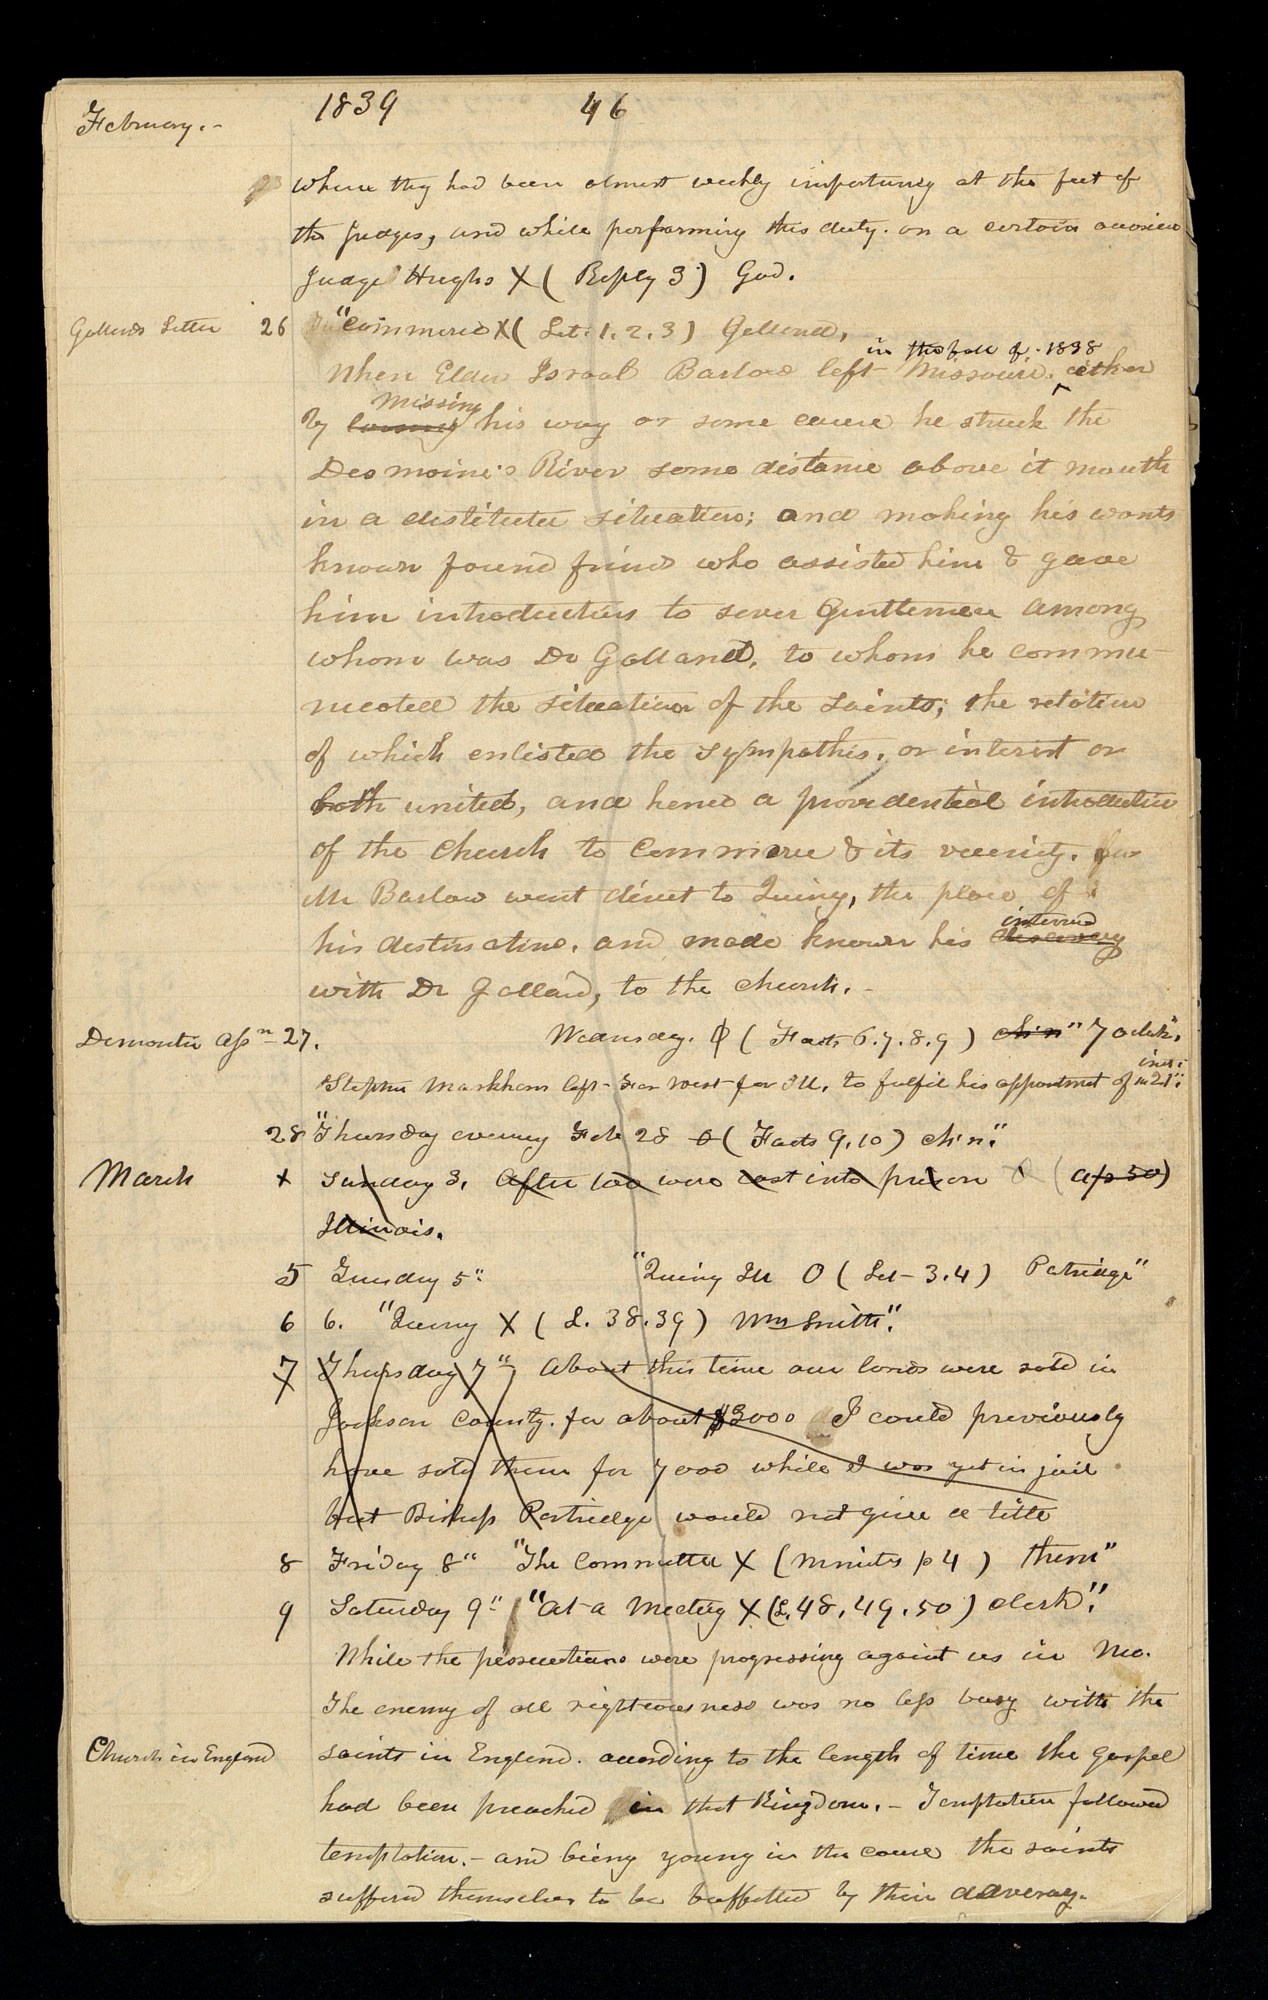 1839 46
February.-
where they had been almost weekly importuning at the feet of
the Judges, and while performing this duty. on a certain occasion
Judge Hughs X ( Reply 3 ) God.
Gallands Letter 26 "Commerce X ( Let: 1. 2. 3 ) Galland,
in the fall of 1838
When Elder Israel Barlow left Missouri. either
missing
by loosing his way or some cause he struck the
Desmoine's River some distance above it mouth
in a destitute situation; and making his wants
known found friends who assisted him & gave
him introductions to sever Gentlemen among
whom was Dr Galland, to whom he commu-
nicated the situation of the Saints; the relation
of which enlisted the sympathis. or interest or
both united, and hence a providential introduction
of the church to Commerce & its vicinity. for
Mr Barlow went direct to Quincy, the place of
interview
his destination. and made known his discovery
with Dr Galland, to the church. -
Democratic Assn- 27. Wednsday. φ ( Facts 6. 7. 8. 9 ) ch'n" 7 oclock".
inst:
Stephen Markham left Far West for Ill. to fulfil his appointment of 21":
28 "Thursday evening Feb 28 O ( Facts 9. 10 ) ch'n".
March X Sunday 3. After we were cast into prison O ( 50 )
Illinois.
5 Tuesday 5" "Quincy Ill O ( Let- 3. 4 ) Patridge"
6 6. "Quincy X ( L. 38. 39 ) Wm Smith".
7 Thursday 7" About this time our lands were sold in
Jackson County. for about $3000 I could previously
have sold them for 7000 while I was yet in jail
but Bishop Partridge would not give a title
8 Friday 8" "The Committee X ( minutes p 4 ) them"
9 Saturday 9" "At a Meeting X (L. 48, 49. 50 ) clerk".
While the persecutions were progressing against us in Mo.
The enemy of all righteousness was no less busy with the
Church in England saints in England. according to the length of time the gospel
had been preached in that Kingdom. - Temptation followed
temptation. - and being young in the cause the saints
suffered themselves to be buffetted by their adversary.